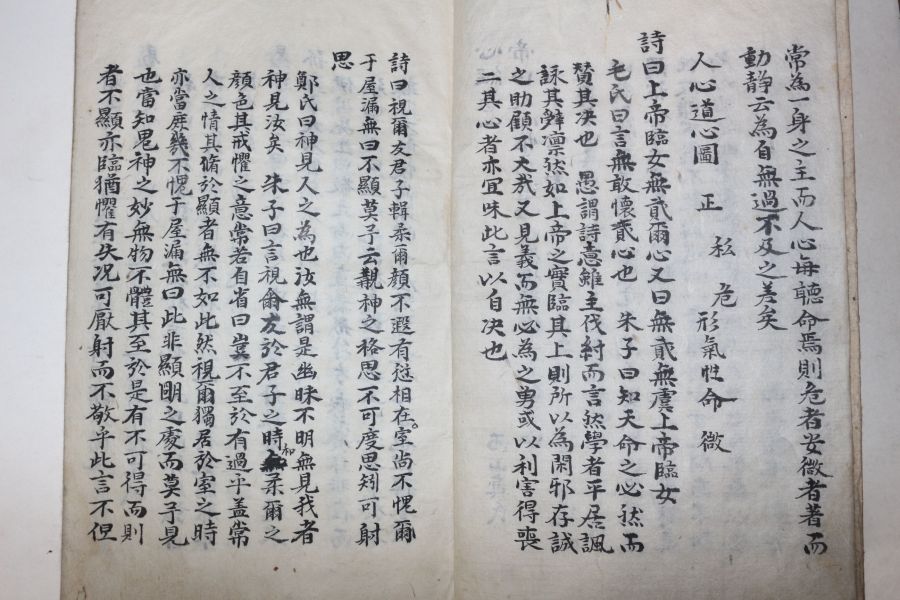 常為一身之主而人心每聽命焉則危者安微者著而
動靜云為自無過不及之差矣
人心道心圖 正 私 危 形氣性命 微
詩曰上帝臨女無貳爾心又曰無貳無虞上帝臨女
毛氏曰言無敢懷貳心也 朱子曰知天命之必然而
贊其决也 愚謂詩意雖主伐紂而言然學者平居諷
詠其辭凛然如上帝之實臨其上則所以為閑邪存誠
之助顧不大哉又見義而無必為之勇或以利害得喪
二其心者亦宜味此言以自决也
詩曰視爾友君子輯柔爾顏不遐有愆相在室尚不愧爾
于屋漏無曰不顯莫予云覯神之格思不可度思矧可射
思
鄭氏曰神見人之為也汝無謂是幽昧不明無見我者
神見汝矣 朱子曰言視爾友於君子之時和柔爾之
顏色其戒懼之意常若自省曰豈不至於有過乎盖常
人之情其脩於顯者無不如此然視爾獨居於室之時
亦當庶幾不愧于屋漏無曰此非顯明之處而莫予見
也當知鬼神之妙無物不體其至於是有不可得而則
者不顯亦臨猶懼有失况可厭射而不敬乎此言不但